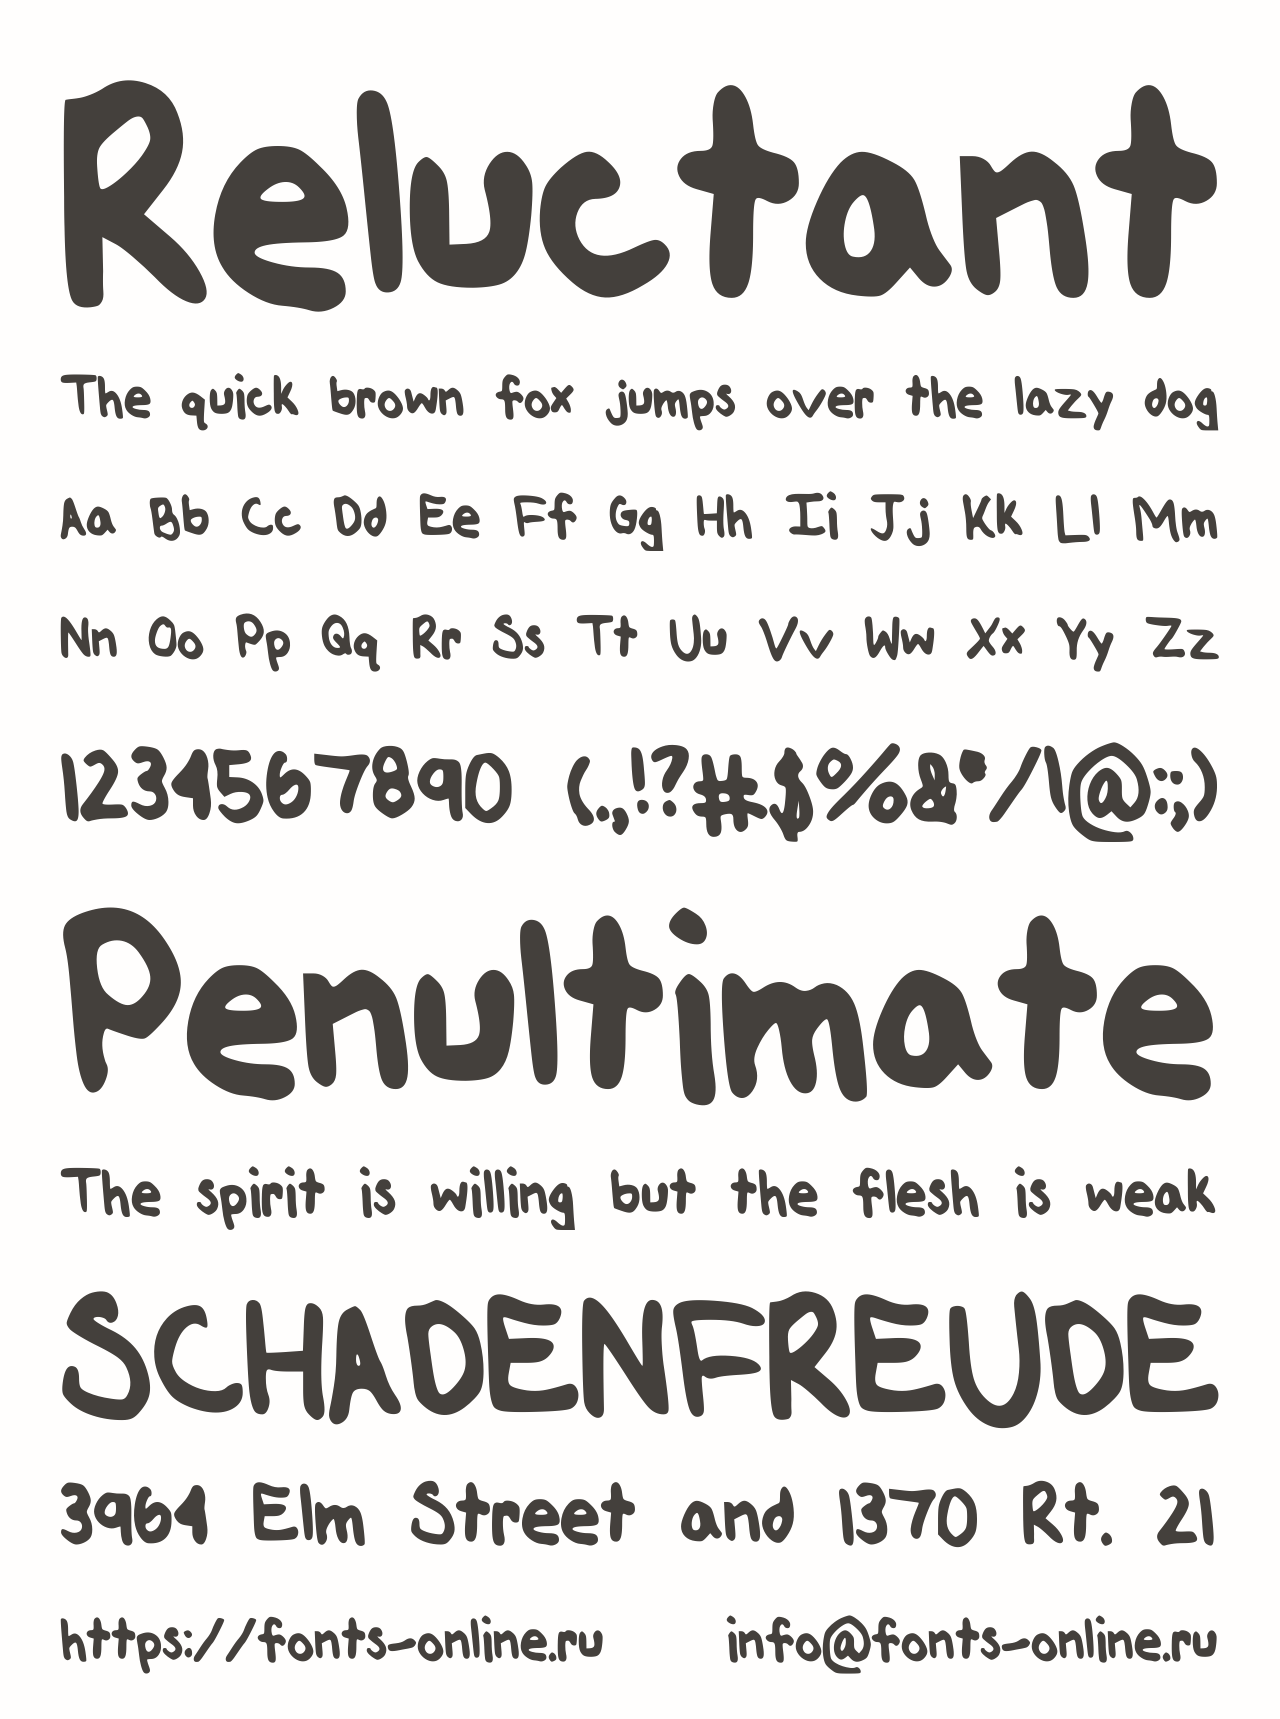 Reluctant
The quick brown fox jumps over the lazy dog
Aa Bb Cc Dd Ee Ff Gg Hh Ii Jj Kk Ll Mm
Nn Oo Pp Qq Rr Ss Tt Uu Vv Ww Xx Yy Zz
1234567890 (.,!?#$%&*/\@:;)
Penultimate
The spirit is willing but the flesh is weak
SCHADENFREUDE
3964 Elm Street and 1370 Rt. 21
https://fonts-online.ru info@fonts-online.ru